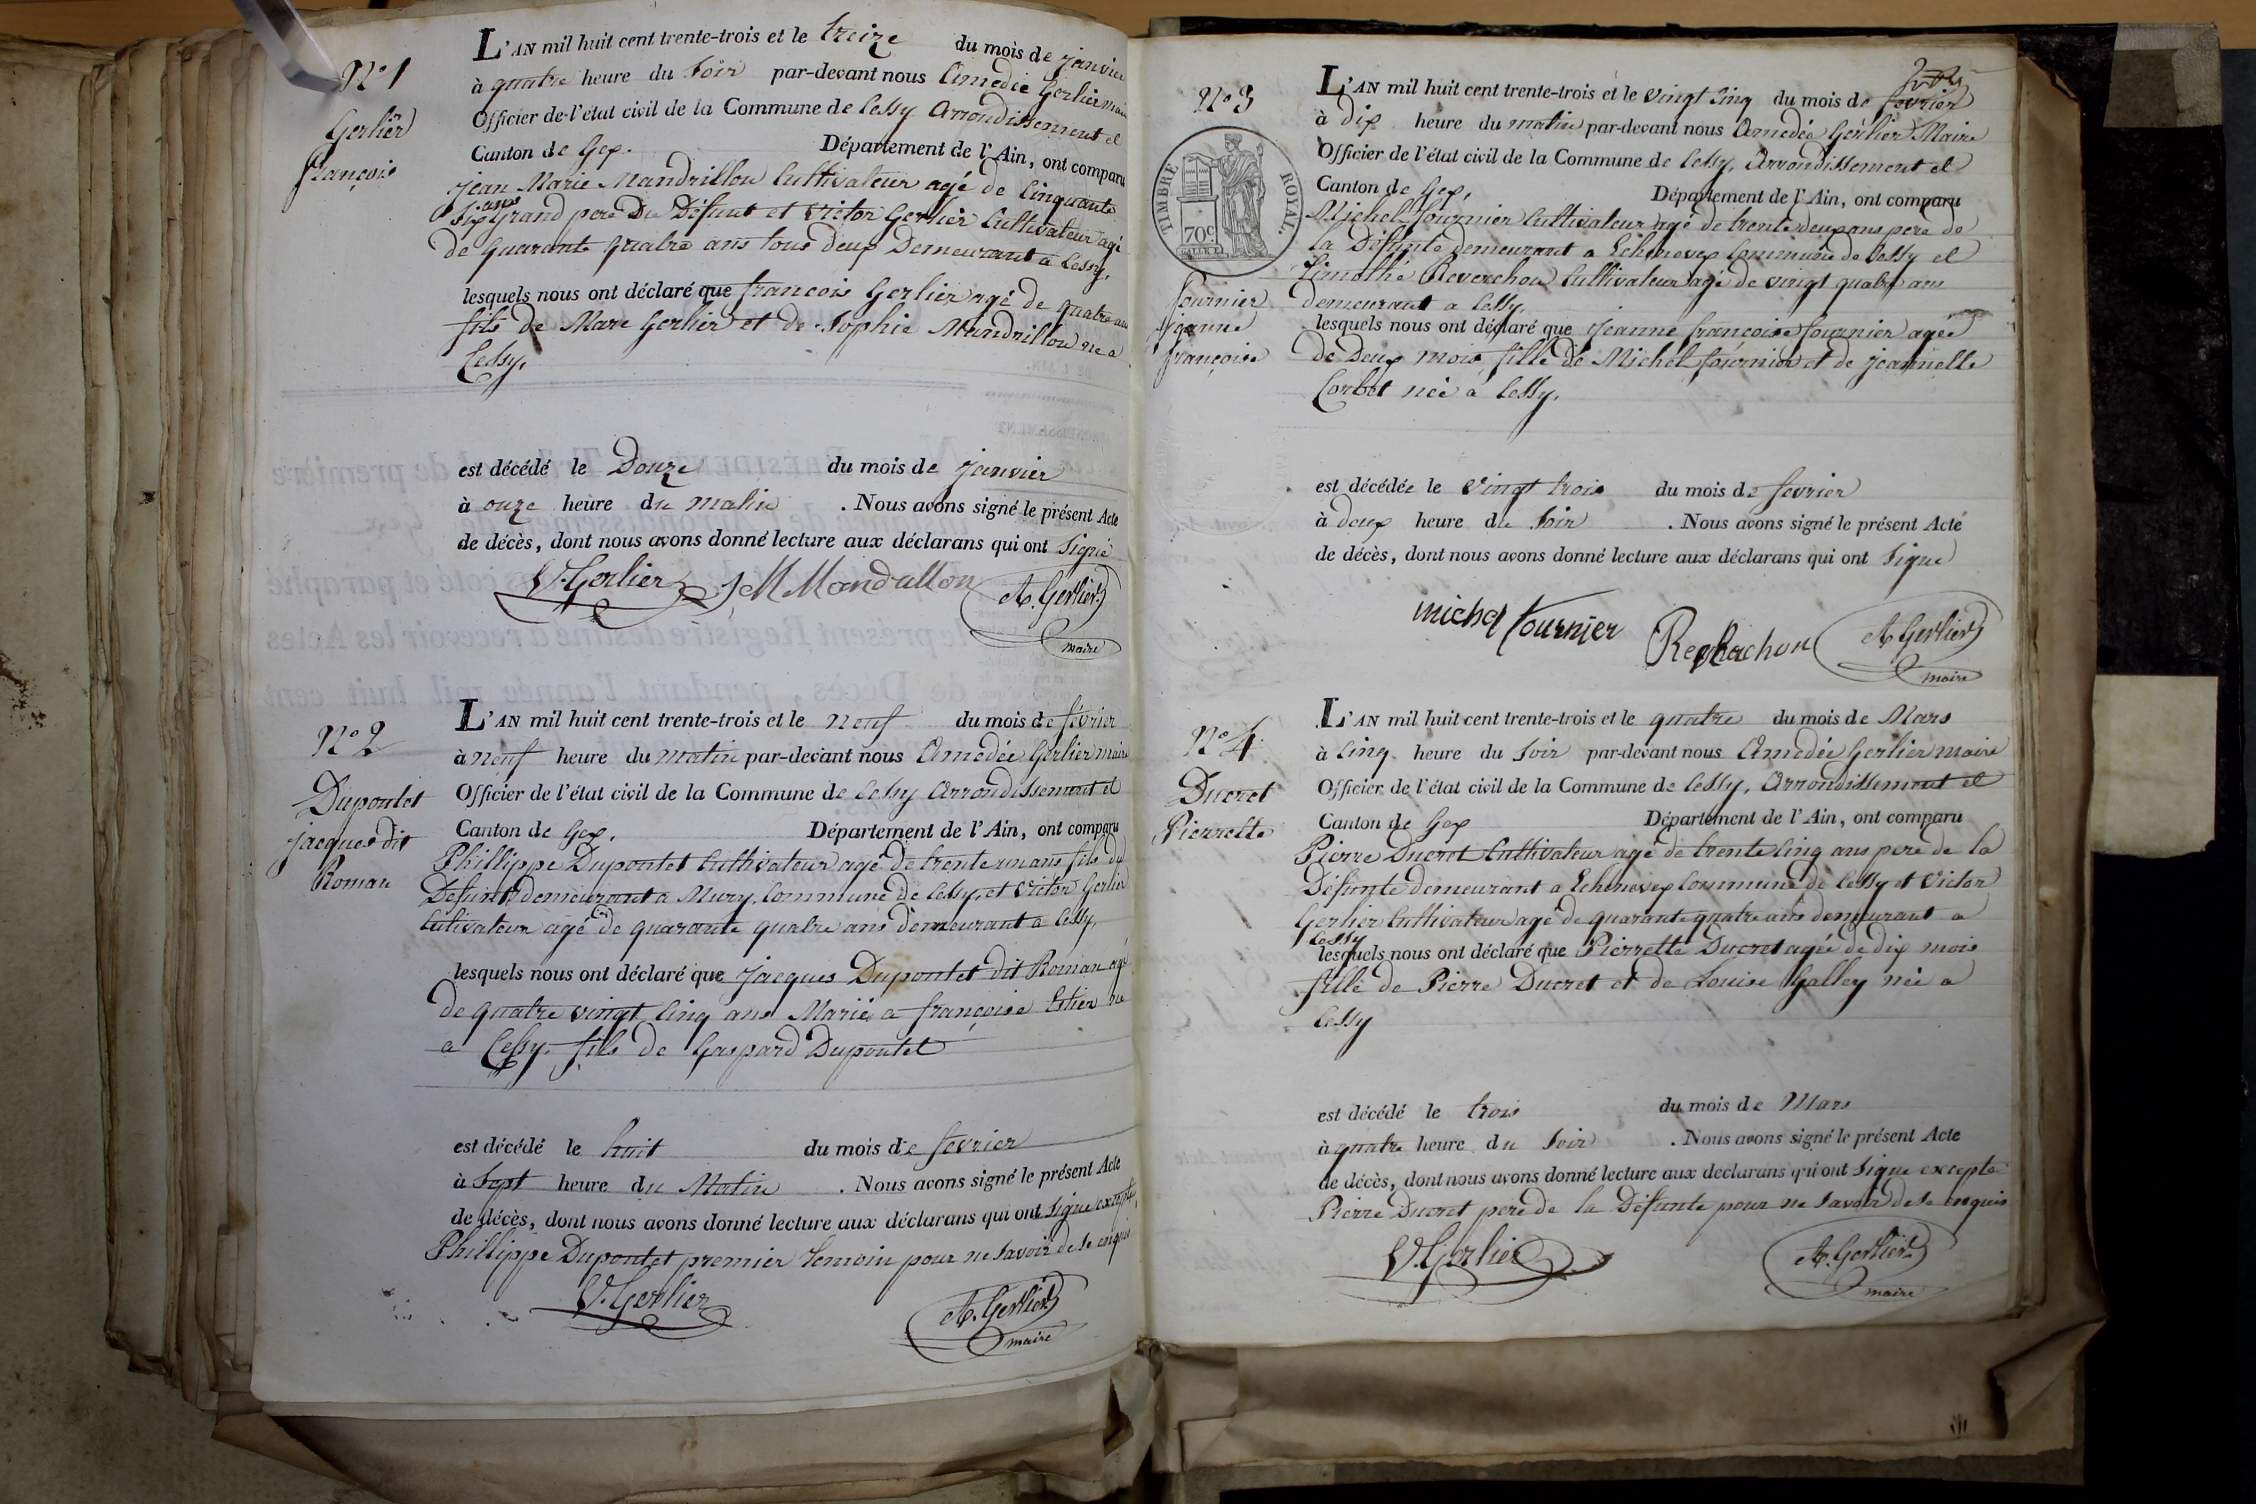 N° 1
Gerlier
françois
L'AN mil huit cent trente-trois et le treize du mois de janvier
à quatre heure du Soir par-devant nous Amedée Gerlier maire
Officier de l'état civil de la Commune de Cessy Arrondissement et
Canton de Gex. Département de l'Ain, ont comparu
jean Marie Mandrillon Cultivateur agé de Cinquante
Six ans Grand pere Du Défunt et Victor Gerlier Cultivateur agé
de quarante quatre ans tous deux Demeurant a Cessy,
lesquels nous ont déclaré que francois Gerlier agé de quatre ans
fils de Marc Gerlier et de Sophie Mandrillon né a
Cessy.
est décédé le Douze du mois de janvier
à onze heure du matin . Nous avons signé le présent Acte
de décès, dont nous avons donné lecture aux déclarans qui ont Signé
V. Gerlier J M Mandrillon A. Gerlier
maire
N° 2
Dupontet
jacques dit
Roman
L'AN mil huit cent trente-trois et le neuf du mois de février
à neuf heure du matin par-devant nous Amedée Gerlier maire
Officier de l'état civil de la Commune de Cessy Arrondissement et
Canton de Gex. Département de l'Ain, ont comparu
Phillippe Dupontet Cultivateur agé de trente un ans fils du
Defunt demeurant a Mury, Commune de Cessy, et Victor Gerlier
Cultivateur agé de quarante quatre ans demeurant a Cessy,
lesquels nous ont déclaré que jacques Dupontet dit Roman agé
de quatre vingt Cinq ans Marié a françoise Estier né
a Cessy. fils de Gaspard Dupontet
est décédé le huit du mois de fevrier
à Sept heure du Matin . Nous avons signé le présent Acte
de décès, dont nous avons donné lecture aux déclarans qui ont Signe excepté
Phillippe Dupontet premier temoin pour ne Savoir de ce enquis
V. Gerlier A. Gerlier
maire
N° 3
TIMBRE ROYAL.
70c
fournier
jeanne
françoise
L'AN mil huit cent trente-trois et le vingt Cinq du mois de fevrier
à dix heure du matin par-devant nous Amedée Gerlier Maire
Officier de l'état civil de la Commune de Cessy, Arrondissement et
Canton de Gex, Département de l'Ain, ont comparu
Michel fournier Cultivateur agé de trente deux ans pere de
la Défunte demeurant a Echenevex Commune de Cessy et
Timothé Reverchon Cultivateur agé de vingt quatre ans
demeurant a Cessy,
lesquels nous ont déclaré que jeanne françoise fournier agée
de Deux mois fille de Michel fournier et de jeannette
Corbet née a Cessy.
est décédée le vingt trois du mois de fevrier
à deux heure du Soir . Nous avons signé le présent Acte
de décès, dont nous avons donné lecture aux déclarans qui ont Signe
michel fournier Reverchon A Gerlier
maire
N° 4
Ducret
Pierrette
L'AN mil huit cent trente-trois et le quatre du mois de Mars
à Cinq heure du Soir par-devant nous Amedée Gerlier maire
Officier de l'état civil de la Commune de Cessy, Arrondissement et
Canton de Gex Département de l'Ain, ont comparu
Pierre Ducret Cultivateur agé de trente Cinq ans pere de la
Défunte demeurant a Echenevex Commune de Cessy et Victor
Gerlier Cultivateur agé de quarante quatre ans demeurant a
Cessy
lesquels nous ont déclaré que Pierrette Ducret agée de dix mois
fille de Pierre Ducret et de Louise Galley née a
Cessy
est décédé le trois du mois de Mars
à quatre heure du Soir . Nous avons signé le présent Acte
de décès, dont nous avons donné lecture aux déclarans qui ont Signe excepté
Pierre Ducret pere de la Défunte pour ne Savoir de ce enquis
V. Gerlier A. Gerlier
maire